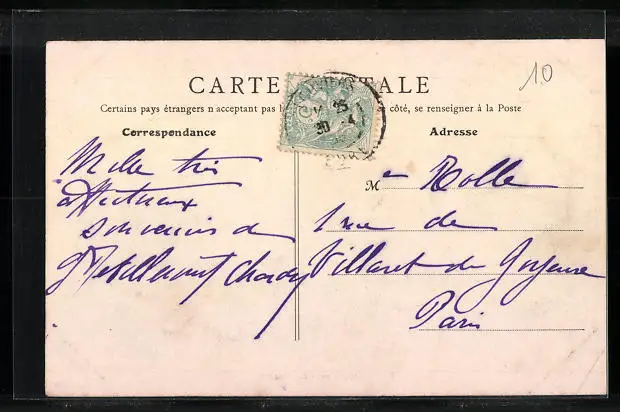 10
CARTE POSTALE
Certains pays étrangers n acceptant pas le côté, se renseigner à la Poste
Correspondance
Adresse
Mille très
affectueux
souvenirs de
Chardy
Me Rolle
1 rue de
Villaret de Joyeuse
Paris
25
30 4